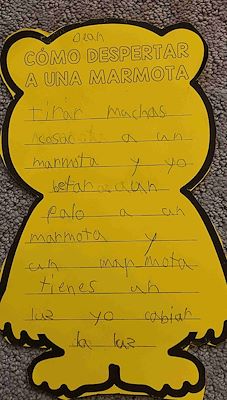 Dean
CÓMO DESPERTAR
A UNA MARMOTA
tirar machas
a un
marmota y yo
un
palo a un
marmota y
un marmota
tienes un
luz yo cabian
la luz